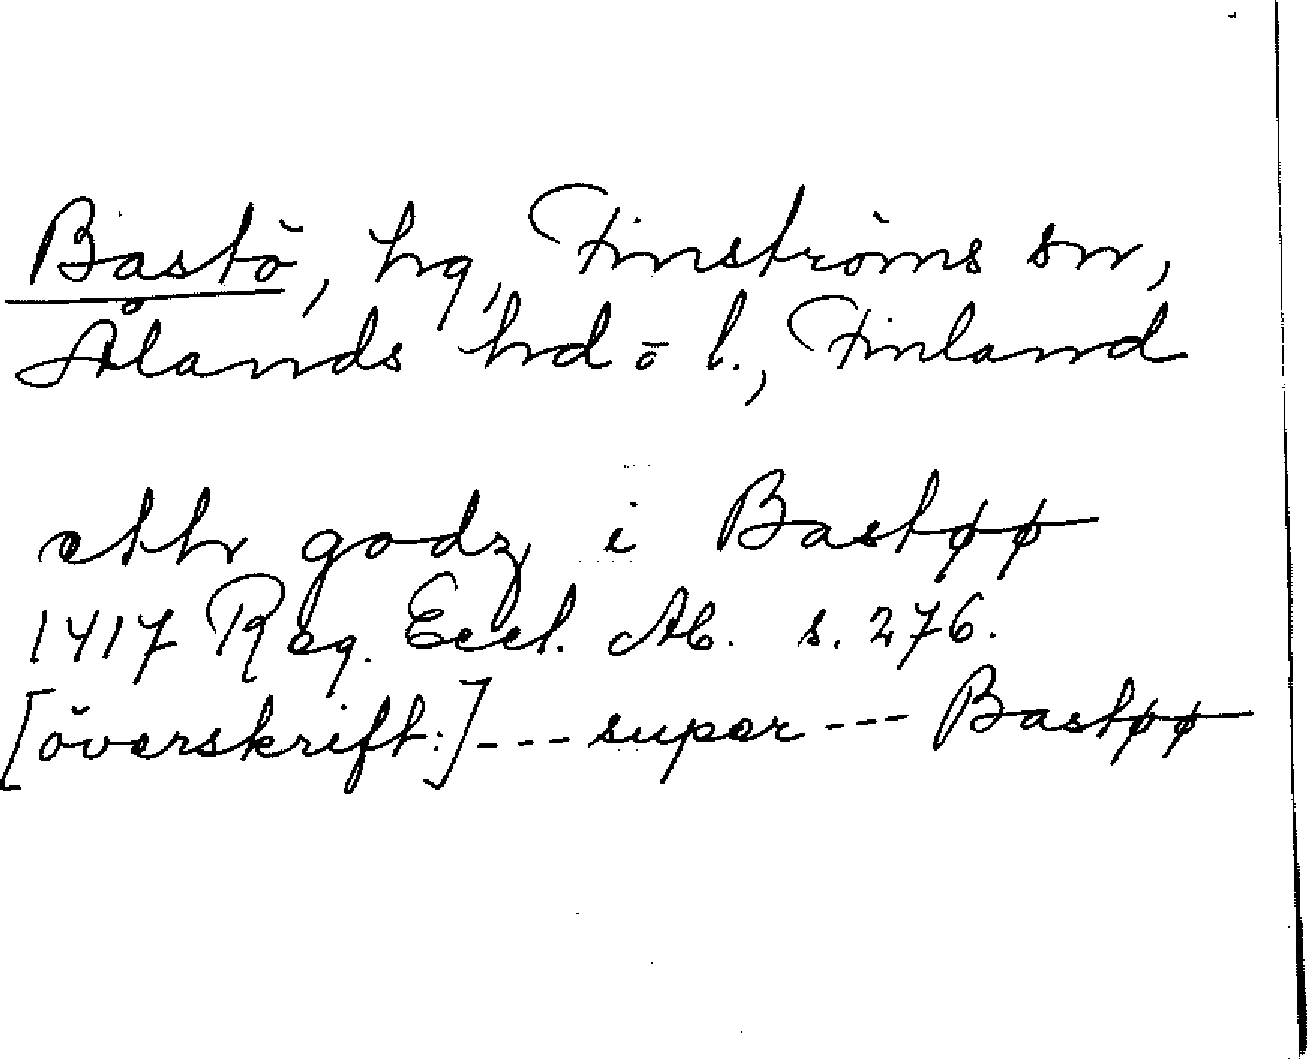 Bastö, hg, Finströms sn,
Ålands hd o l., Finland
ett godz i Bastøø
1417 Reg. Eccl. Ab. s. 276.
[överskrift:] --- super --- Bastøø